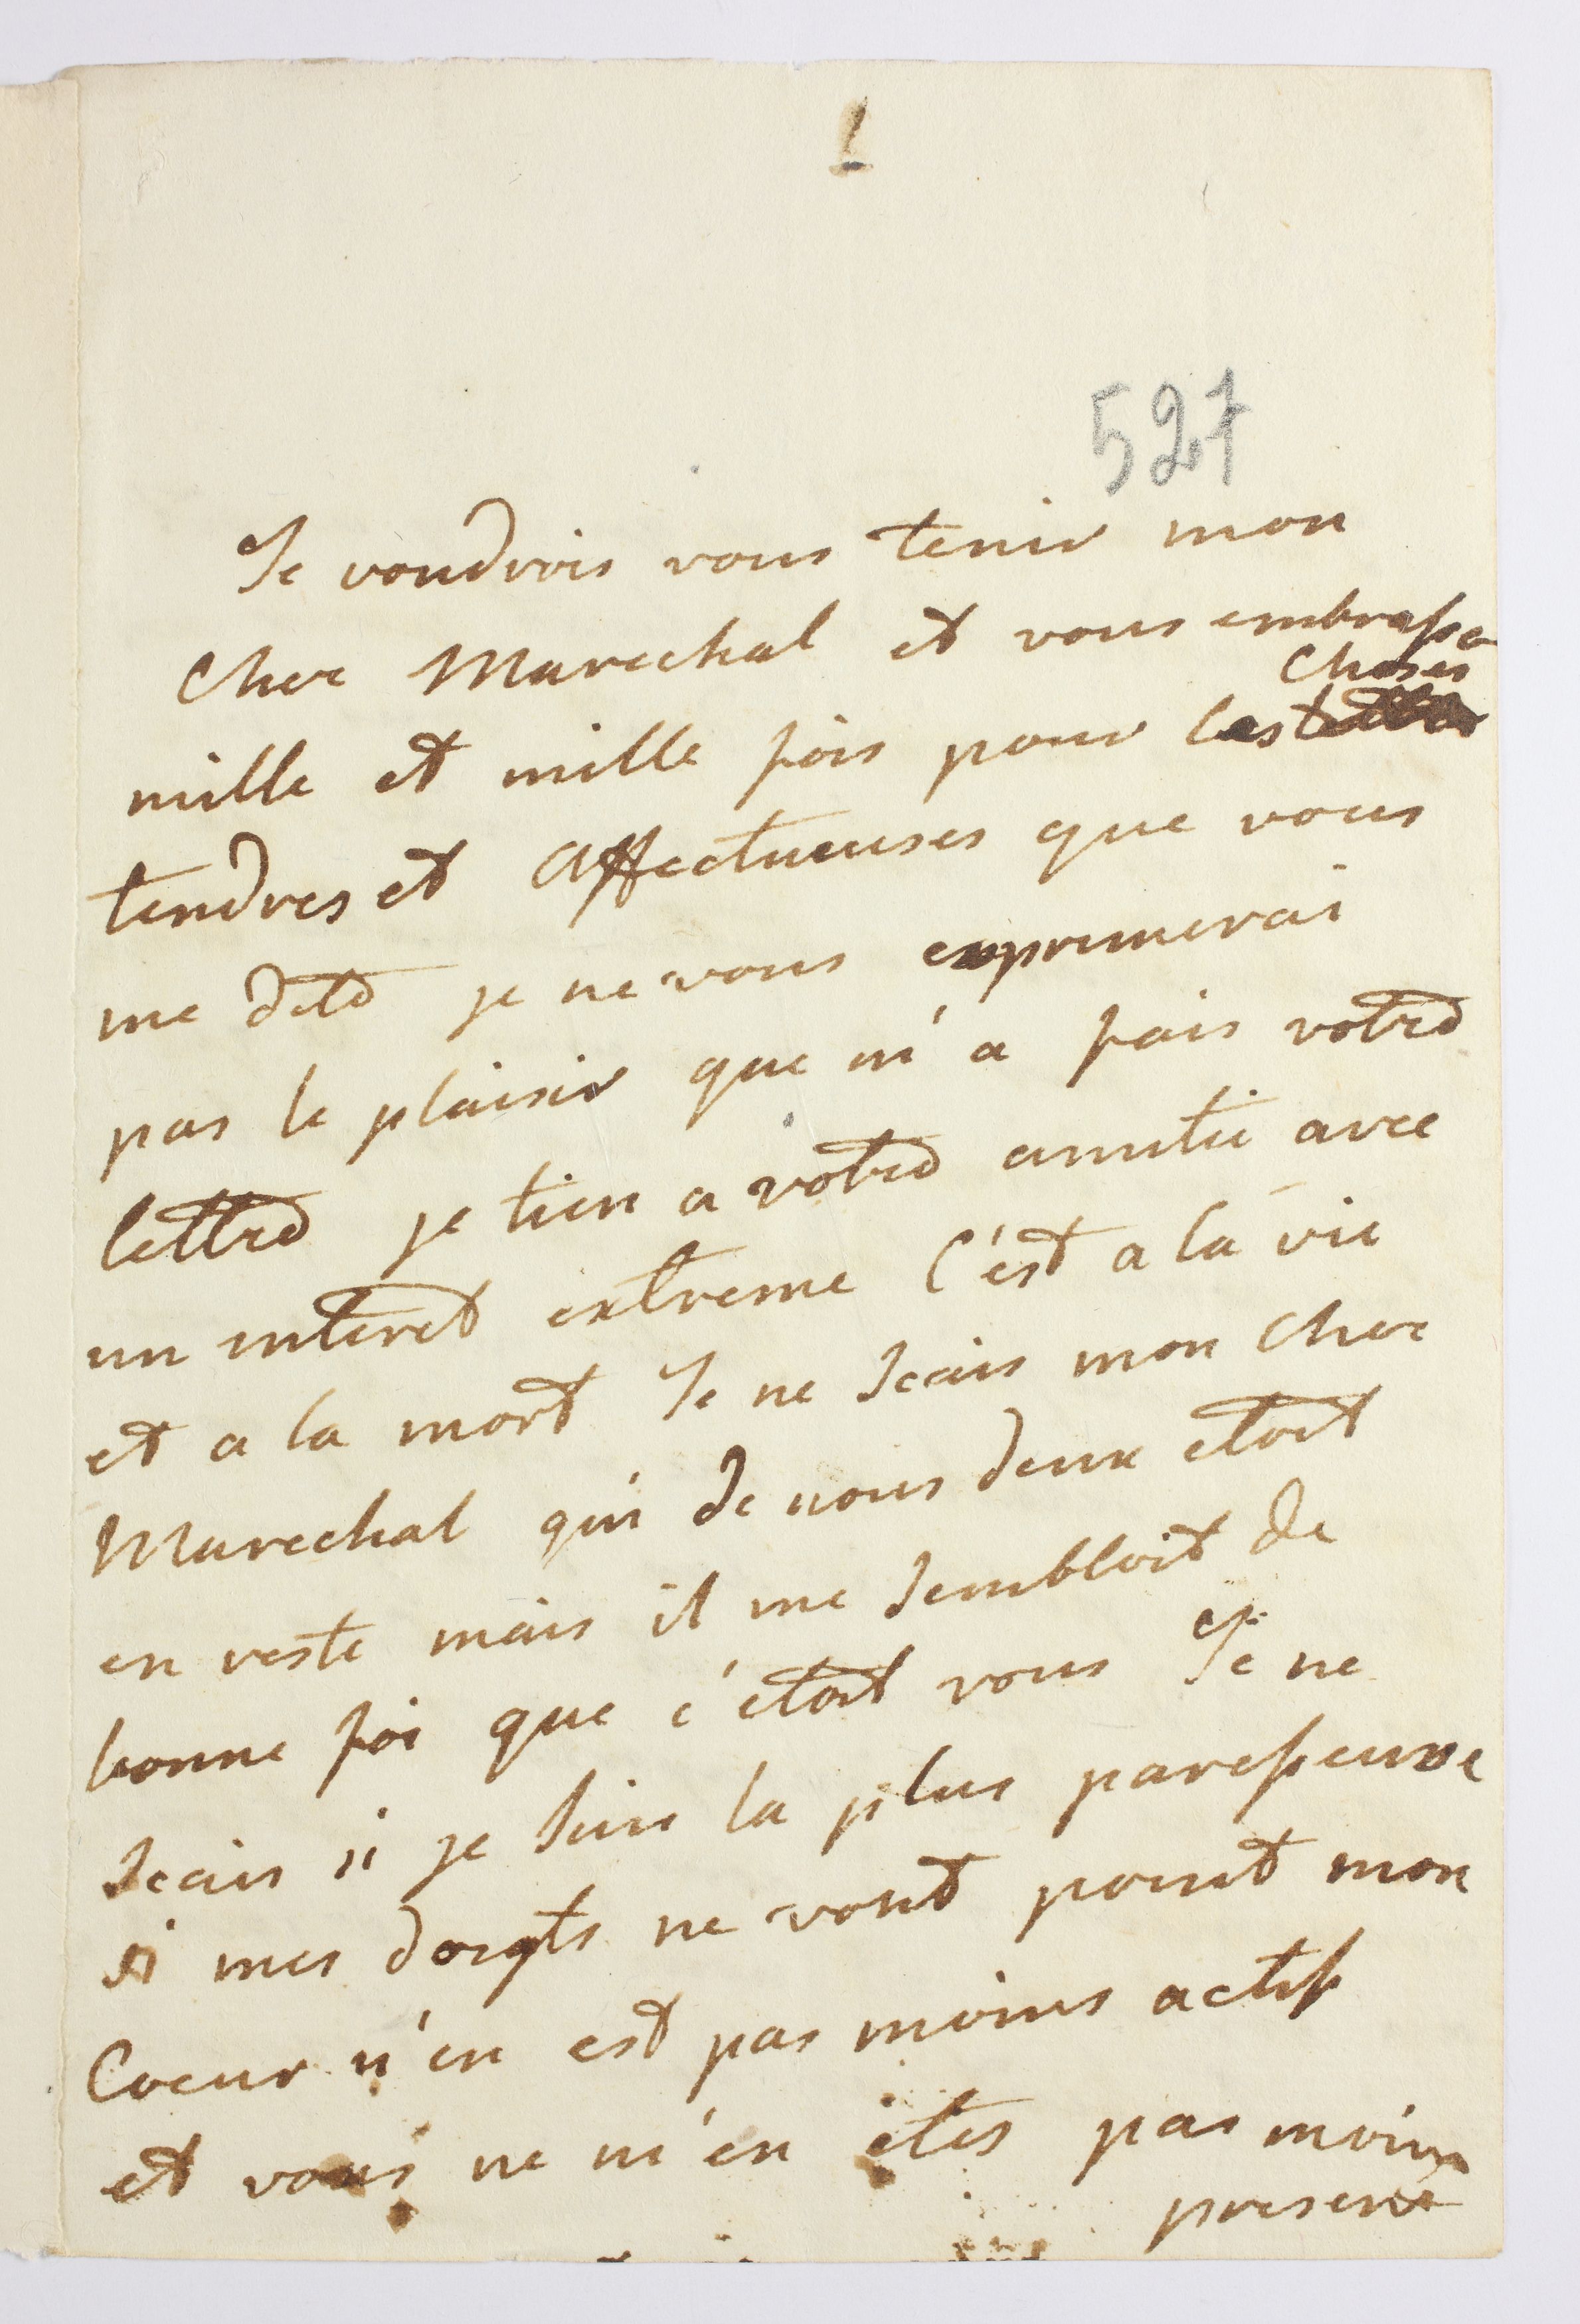 1
527
Je voudrois vous tenir mon
Cher Marechal et vous embrasser
Choses
mille et mille fois pour les
tendres et affectueuses que vous
me dite je ne vous exprimerai
pas le plaisir que m'a fais votre
lettre je tien a votre amitié avec
un interet extreme C'est a la vie
et a la mort Je ne scais mon Cher
Marechal qui de nous deux etoit
en reste mais il me sembloit de
bonne foi que c'etoit vous Je ne
scais si je suis la plus paresseuse
si mes doigts ne vont point mon
Coeur n'en est pas moins actif
et vous ne m'en êtes pas moins
present